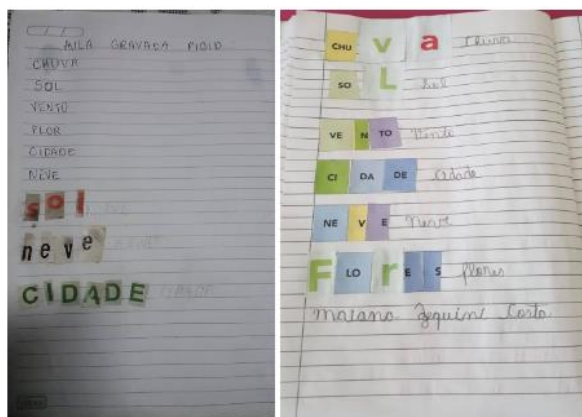 AULA GRAVADA PIBID
CHUVA
SOL
VENTO
FLOR
CIDADE
NEVE
sol
neve
CIDADE
CHU v a Chuva
SO L Sol
VE N TO Vento
CI DA DE Cidade
NE V E Neve
F LO r E S flores
Mariana Zequini Costa